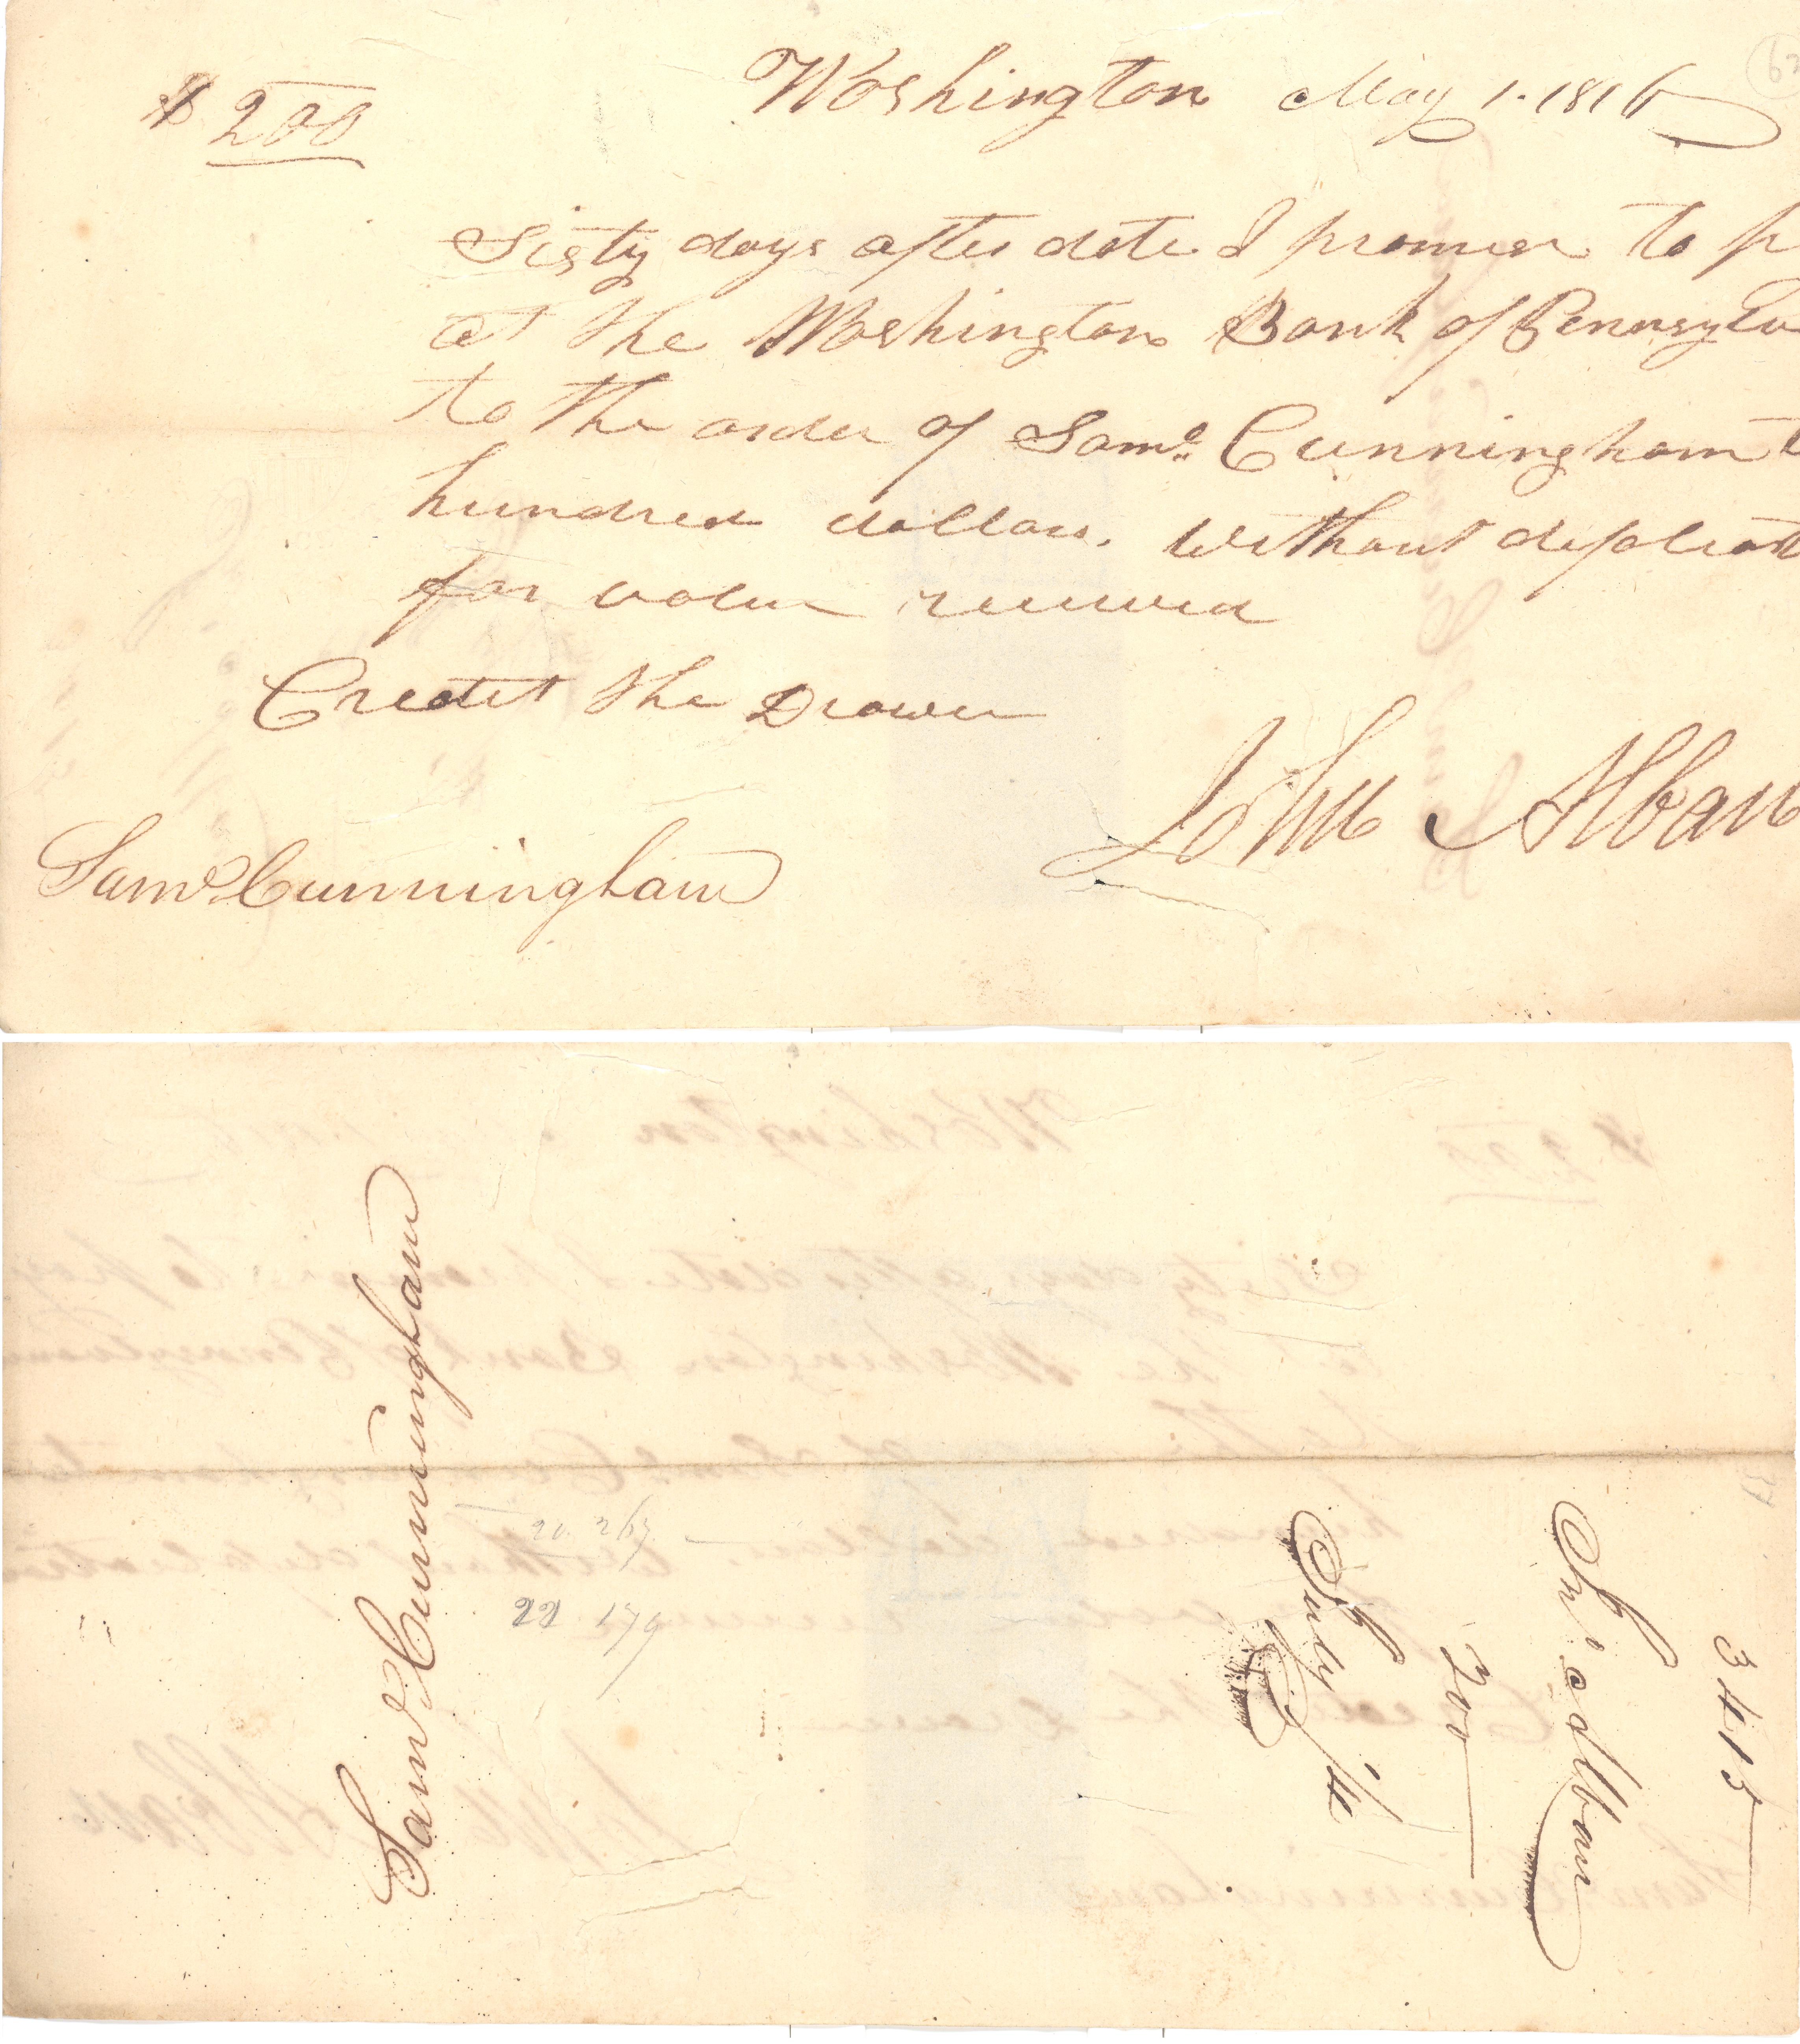 $ 200
Washington May 1. 1816
Sixty days after date I promise to p
at the Washington Bank of Pennsylva
to the order of Saml. Cunningham t
hundred dollars. Without defalcat
for value received
Credit the Drawer
John Alban
Saml Cunningham
Saml Cunningham
20. 267
22 179
3415
Jn. Alban
200
July